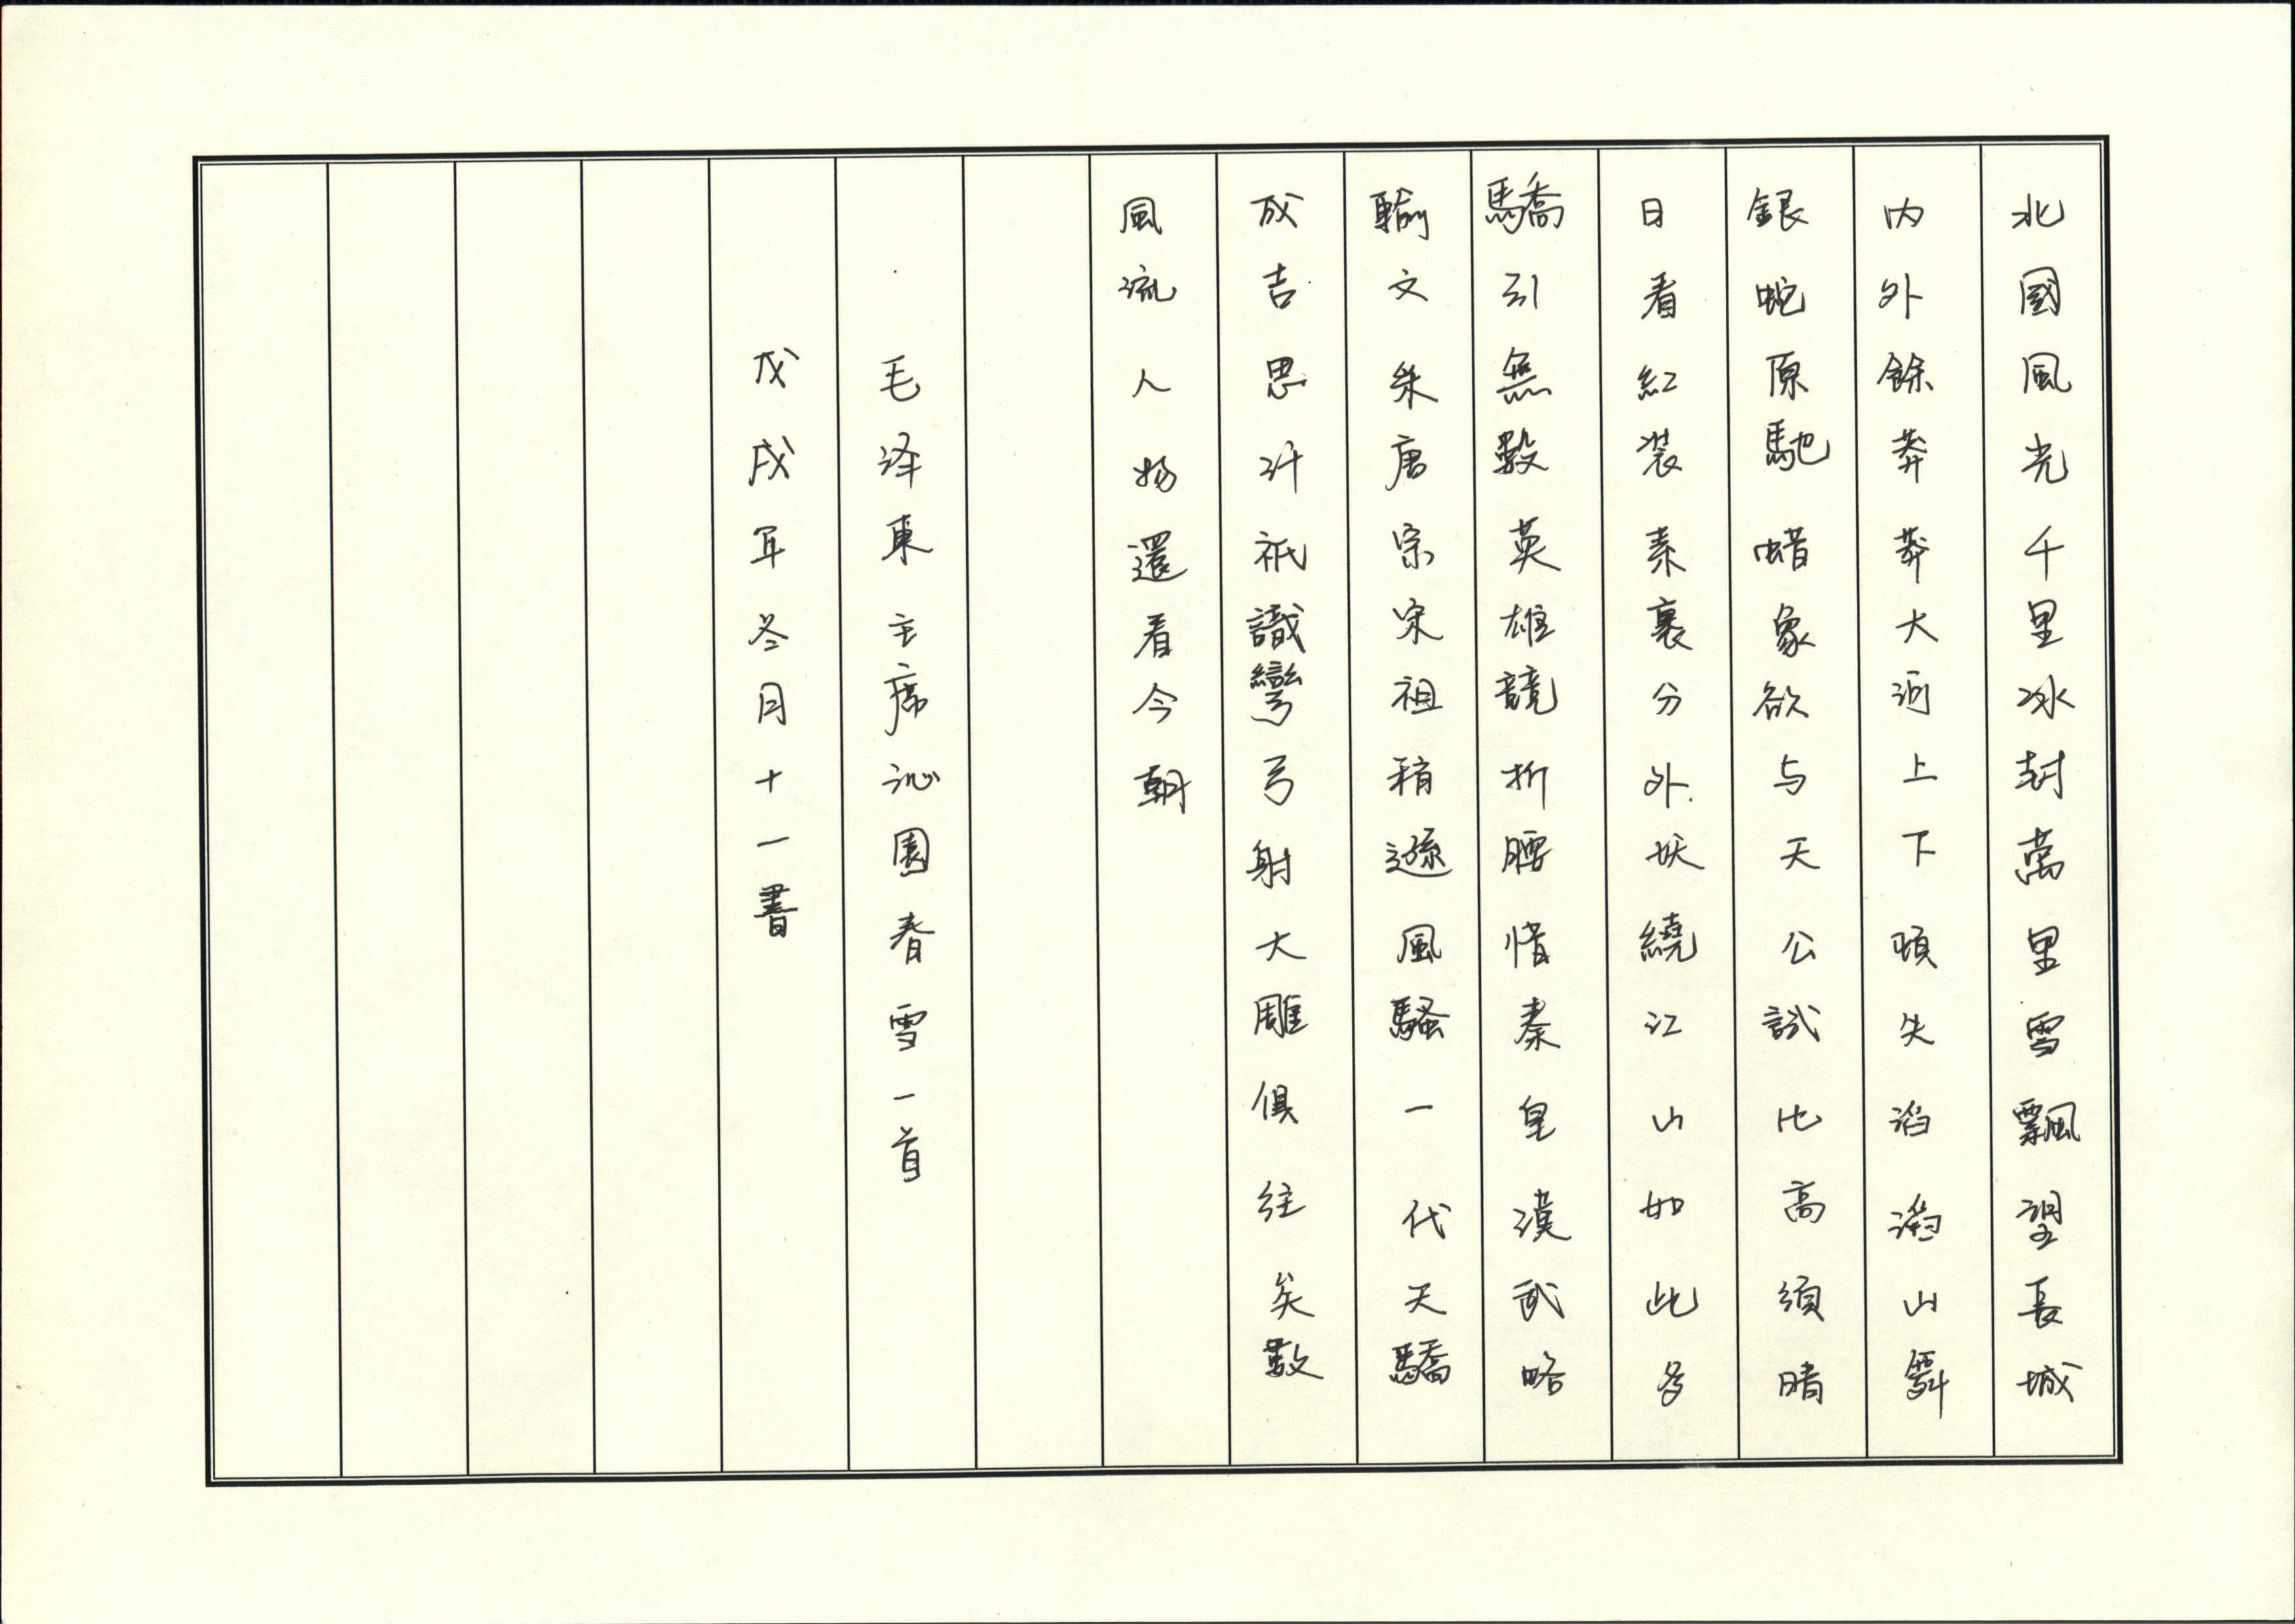 北國風光千里冰封萬里雪飄望長城
内外餘莽莽大河上下頓失滔滔山舞
銀蛇原馳蜡象欲与天公試比高須晴
日看紅装素裹分外妖繞江山如此多
驕引無數英雄競折腰惜秦皇漢武略
輸文采唐宗宋祖稍遜風騷一代天驕
成吉思汗祇識彎弓射大雕俱往矣數
風流人物還看今朝
毛泽東主席沁園春雪一首
戊戌年冬月十一書